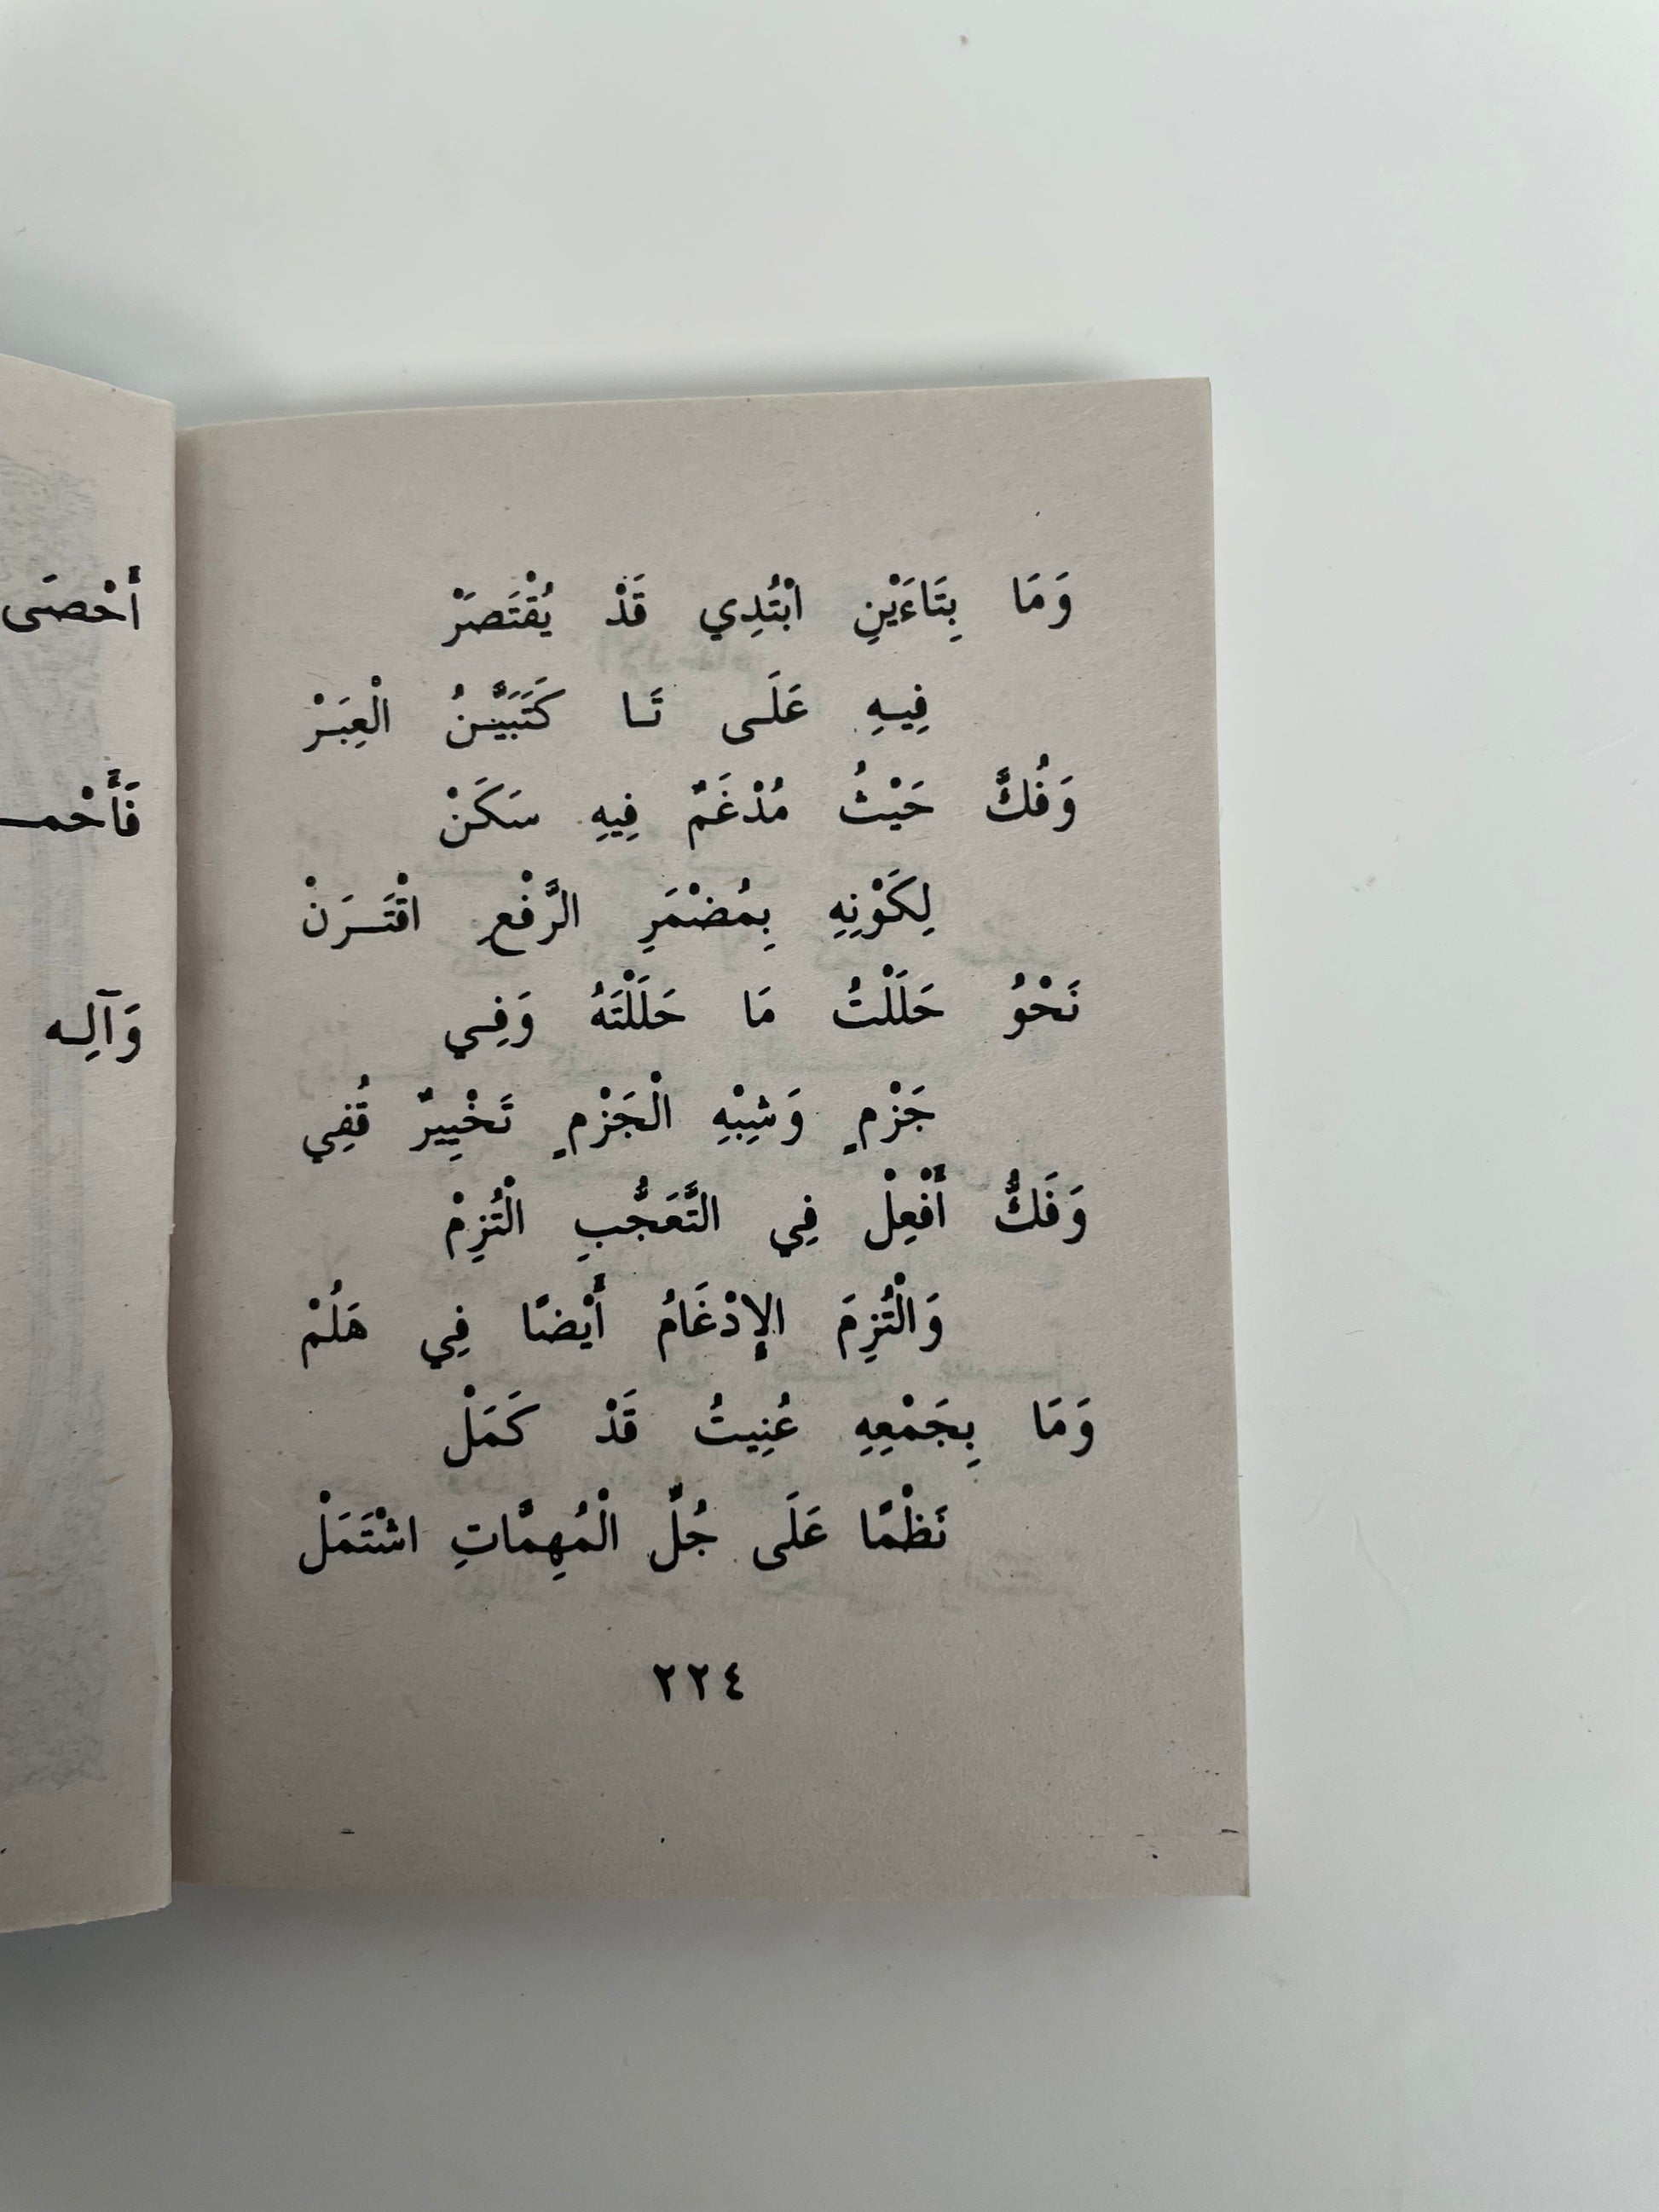 وَمَا بِتَاءَيْنِ ابْتُدِي قَدْ يُقْتَصَرْ
فِيهِ عَلَى تَا كَتَبَيَّنُ الْعِبَرْ
وَفُكَّ حَيْثُ مُدْغَمٌ فِيهِ سَكَنْ
لِكَوْنِهِ بِمُضْمَرِ الرَّفْعِ اقْتَرَنْ
نَحْوُ حَلَلْتُ مَا حَلَلْتَهُ وَفِي
جَزْمٍ وَشِبْهِ الْجَزْمِ تَخْيِيرٌ قُفِي
وَفَكُّ أَفْعِلْ فِي التَّعَجُّبِ الْتُزِمْ
وَالْتُزِمَ الإِدْغَامُ أَيْضًا فِي هَلُمْ
وَمَا بِجَمْعِهِ عُنِيتُ قَدْ كَمَلْ
نَظْمًا عَلَى جُلِّ الْمُهِمَّاتِ اشْتَمَلْ
٢٢٤
أَحْصَى
وَآلِهِ